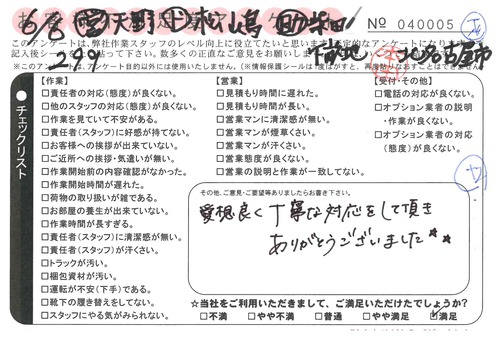 6/8 営天野 土 松嶋 助柴田
№ 040005
このアンケートは、弊社作業スタッフのレベル向上に役立てたいと思います。
299
北名古屋市
※このアンケートは、アンケート目的以外には使用いたしません。
チェックリスト
【作業】
□責任者の対応(態度)が良くない。
□他のスタッフの対応(態度)が良くない。
□作業を見ていて不安がある。
□責任者(スタッフ)に好感が持てない。
□お客様への挨拶が出来ていない。
□ご近所への挨拶・気遣いが無い。
□作業開始前の内容確認がなかった。
□作業開始時間が遅れた。
□荷物の取り扱いが雑である。
□お部屋の養生が出来ていない。
□作業時間が長すぎる。
□責任者(スタッフ)に清潔感が無い。
□責任者(スタッフ)が汗くさい。
□トラックが汚い。
□梱包資材が汚い。
□運転が不安(下手)である。
□靴下の履き替えをしてない。
□スタッフにやる気がみられない。
【営業】
□見積もり時間に遅れた。
□見積もり時間が長い。
□営業マンに清潔感が無い。
□営業マンが煙草くさい。
□営業マンが汗くさい。
□営業態度が良くない。
□営業の説明と作業が一致してない。
【受付・その他】
□電話の対応が良くない。
□オプション業者の説明
・作業が良くない。
□オプション業者の対応
(態度)が良くない。
その他、ご意見・ご要望等ありましたらお書き下さい。
愛想良く丁寧な対応をして頂き
ありがとうございました☆★
☆当社をご利用いただきまして、ご満足いただけたでしょうか?
□不満 □やや不満 □普通 □やや満足 ☑満足